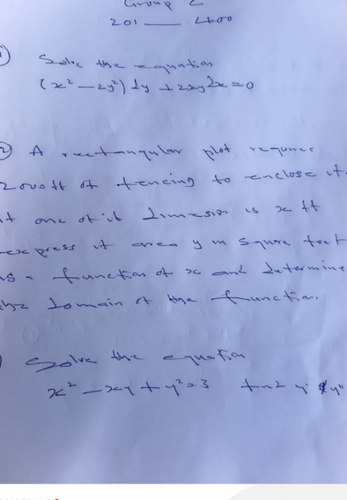 Group 2
201 — 400
1)
Solve the equation
(x² - 2y²) dy + 2xy dx = 0
2) A rectangular plot requires
2000 ft of fencing to enclose it.
If one of it dimesion is x ft
express it area y in square feet
as a function of x and determine
the domain of the function.
) Solve the equation
x² - xy + y² = 3 y' y"